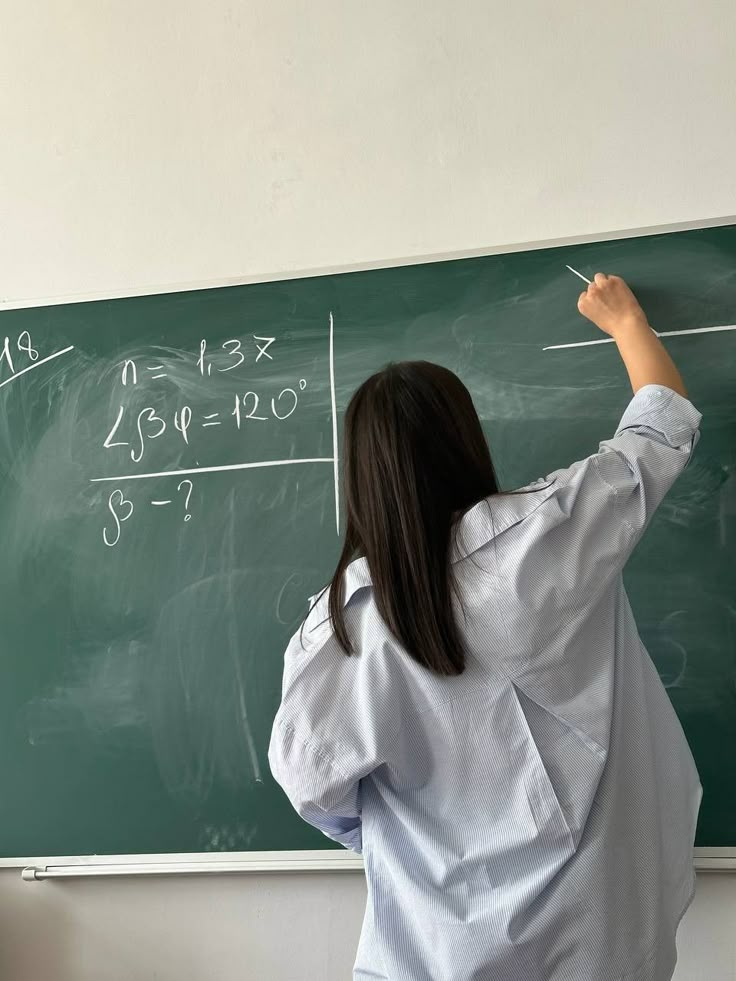 18
n = 1,37
∠βφ = 120°
β - ?